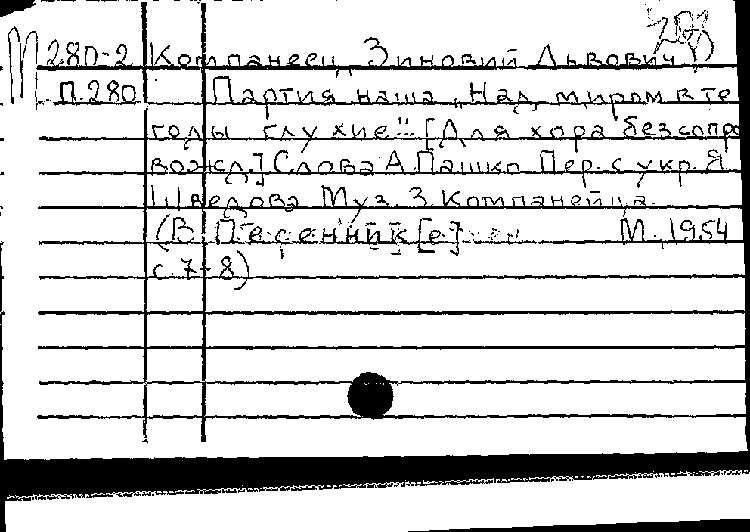 М 280-2 Компанеец, Зиновий Львович
П.280 Партия наша „Над миром в те
годы глухие". [Для хора без сопро
вожд.] Слова А. Пашко Пер. с укр. Я.
Шведова Муз. З. Компанейца.
(В Песенник[е] М., 1954
с. 7-8)